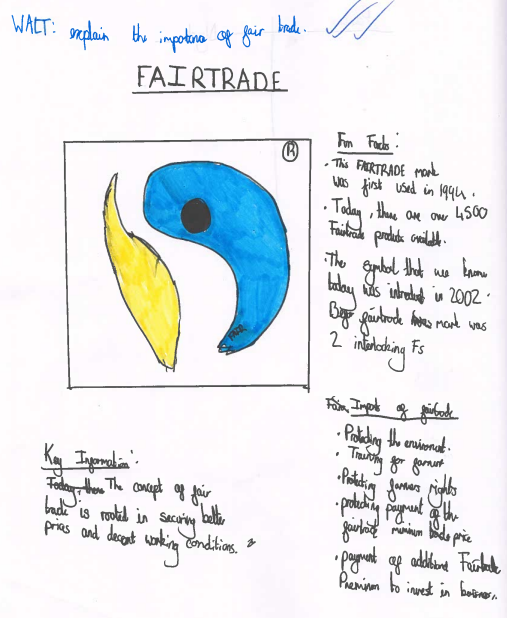 WALT: explain the importance of fair trade.
FAIRTRADE
R
Fun Facts:
· This FAIRTRADE mark
was first used in 1994.
· Today, there are over 4500
Fairtrade products available.
· The symbol that we know
today was introduced in 2002.
fairtrade mark was
2 interlocking Fs
Impacts of fairtrade
· Protecting the environment.
· Training for farmers
· Protecting farmers rights
· protecting payment of the
fairtrade minimum trade price
· payment of additional Fairtrade
Premium to invest in business.
Key Information:
Today, there The concept of fair
trade is rooted in securing better
prices and decent working conditions.